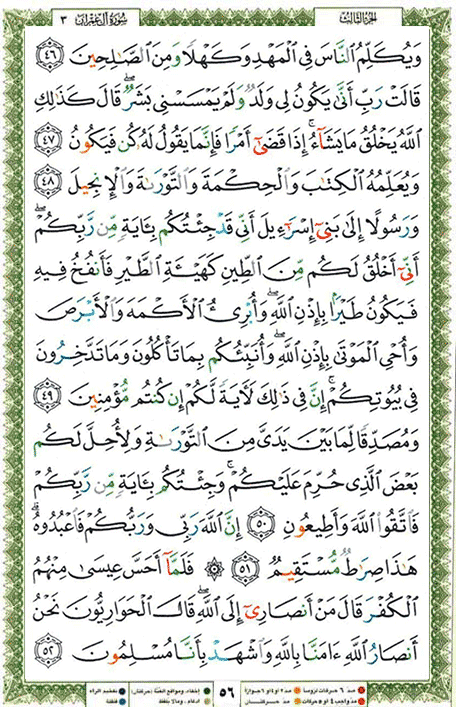 سُورَةُ آلِ عِمْرَان ٣
الجزء الثالث
وَيُكَلِّمُ ٱلنَّاسَ فِى ٱلْمَهْدِ وَكَهْلًا وَمِنَ ٱلصَّـٰلِحِينَ ٤٦
قَالَتْ رَبِّ أَنَّىٰ يَكُونُ لِى وَلَدٌ وَلَمْ يَمْسَسْنِى بَشَرٌ ۖ قَالَ كَذَٰلِكِ
ٱللَّهُ يَخْلُقُ مَا يَشَآءُ ۚ إِذَا قَضَىٰٓ أَمْرًا فَإِنَّمَا يَقُولُ لَهُۥ كُن فَيَكُونُ ٤٧
وَيُعَلِّمُهُ ٱلْكِتَـٰبَ وَٱلْحِكْمَةَ وَٱلتَّوْرَىٰةَ وَٱلْإِنجِيلَ ٤٨
وَرَسُولًا إِلَىٰ بَنِىٓ إِسْرَٰٓءِيلَ أَنِّى قَدْ جِئْتُكُم بِـَٔايَةٍ مِّن رَّبِّكُمْ ۖ
أَنِّىٓ أَخْلُقُ لَكُم مِّنَ ٱلطِّينِ كَهَيْـَٔةِ ٱلطَّيْرِ فَأَنفُخُ فِيهِ
فَيَكُونُ طَيْرًۢا بِإِذْنِ ٱللَّهِ ۖ وَأُبْرِئُ ٱلْأَكْمَهَ وَٱلْأَبْرَصَ
وَأُحْىِ ٱلْمَوْتَىٰ بِإِذْنِ ٱللَّهِ ۖ وَأُنَبِّئُكُم بِمَا تَأْكُلُونَ وَمَا تَدَّخِرُونَ
فِى بُيُوتِكُمْ ۚ إِنَّ فِى ذَٰلِكَ لَـَٔايَةً لَّكُمْ إِن كُنتُم مُّؤْمِنِينَ ٤٩
وَمُصَدِّقًا لِّمَا بَيْنَ يَدَىَّ مِنَ ٱلتَّوْرَىٰةِ وَلِأُحِلَّ لَكُم
بَعْضَ ٱلَّذِى حُرِّمَ عَلَيْكُمْ ۚ وَجِئْتُكُم بِـَٔايَةٍ مِّن رَّبِّكُمْ
فَٱتَّقُوا۟ ٱللَّهَ وَأَطِيعُونِ ٥٠ إِنَّ ٱللَّهَ رَبِّى وَرَبُّكُمْ فَٱعْبُدُوهُ ۗ
هَـٰذَا صِرَٰطٌ مُّسْتَقِيمٌ ٥١ ۞ فَلَمَّآ أَحَسَّ عِيسَىٰ مِنْهُمُ
ٱلْكُفْرَ قَالَ مَنْ أَنصَارِىٓ إِلَى ٱللَّهِ ۖ قَالَ ٱلْحَوَارِيُّونَ نَحْنُ
أَنصَارُ ٱللَّهِ ءَامَنَّا بِٱللَّهِ وَٱشْهَدْ بِأَنَّا مُسْلِمُونَ ٥٢
٥٦
مد ٦ حركات لزوماً
مد ٢ أو ٤ أو ٦ جوازاً
إخفاء، ومواقع الغنة (حركتان)
تفخيم الراء
مد واجب ٤ أو ٥ حركات
مد حركتان
إدغام، وما لا يلفظ
قلقلة